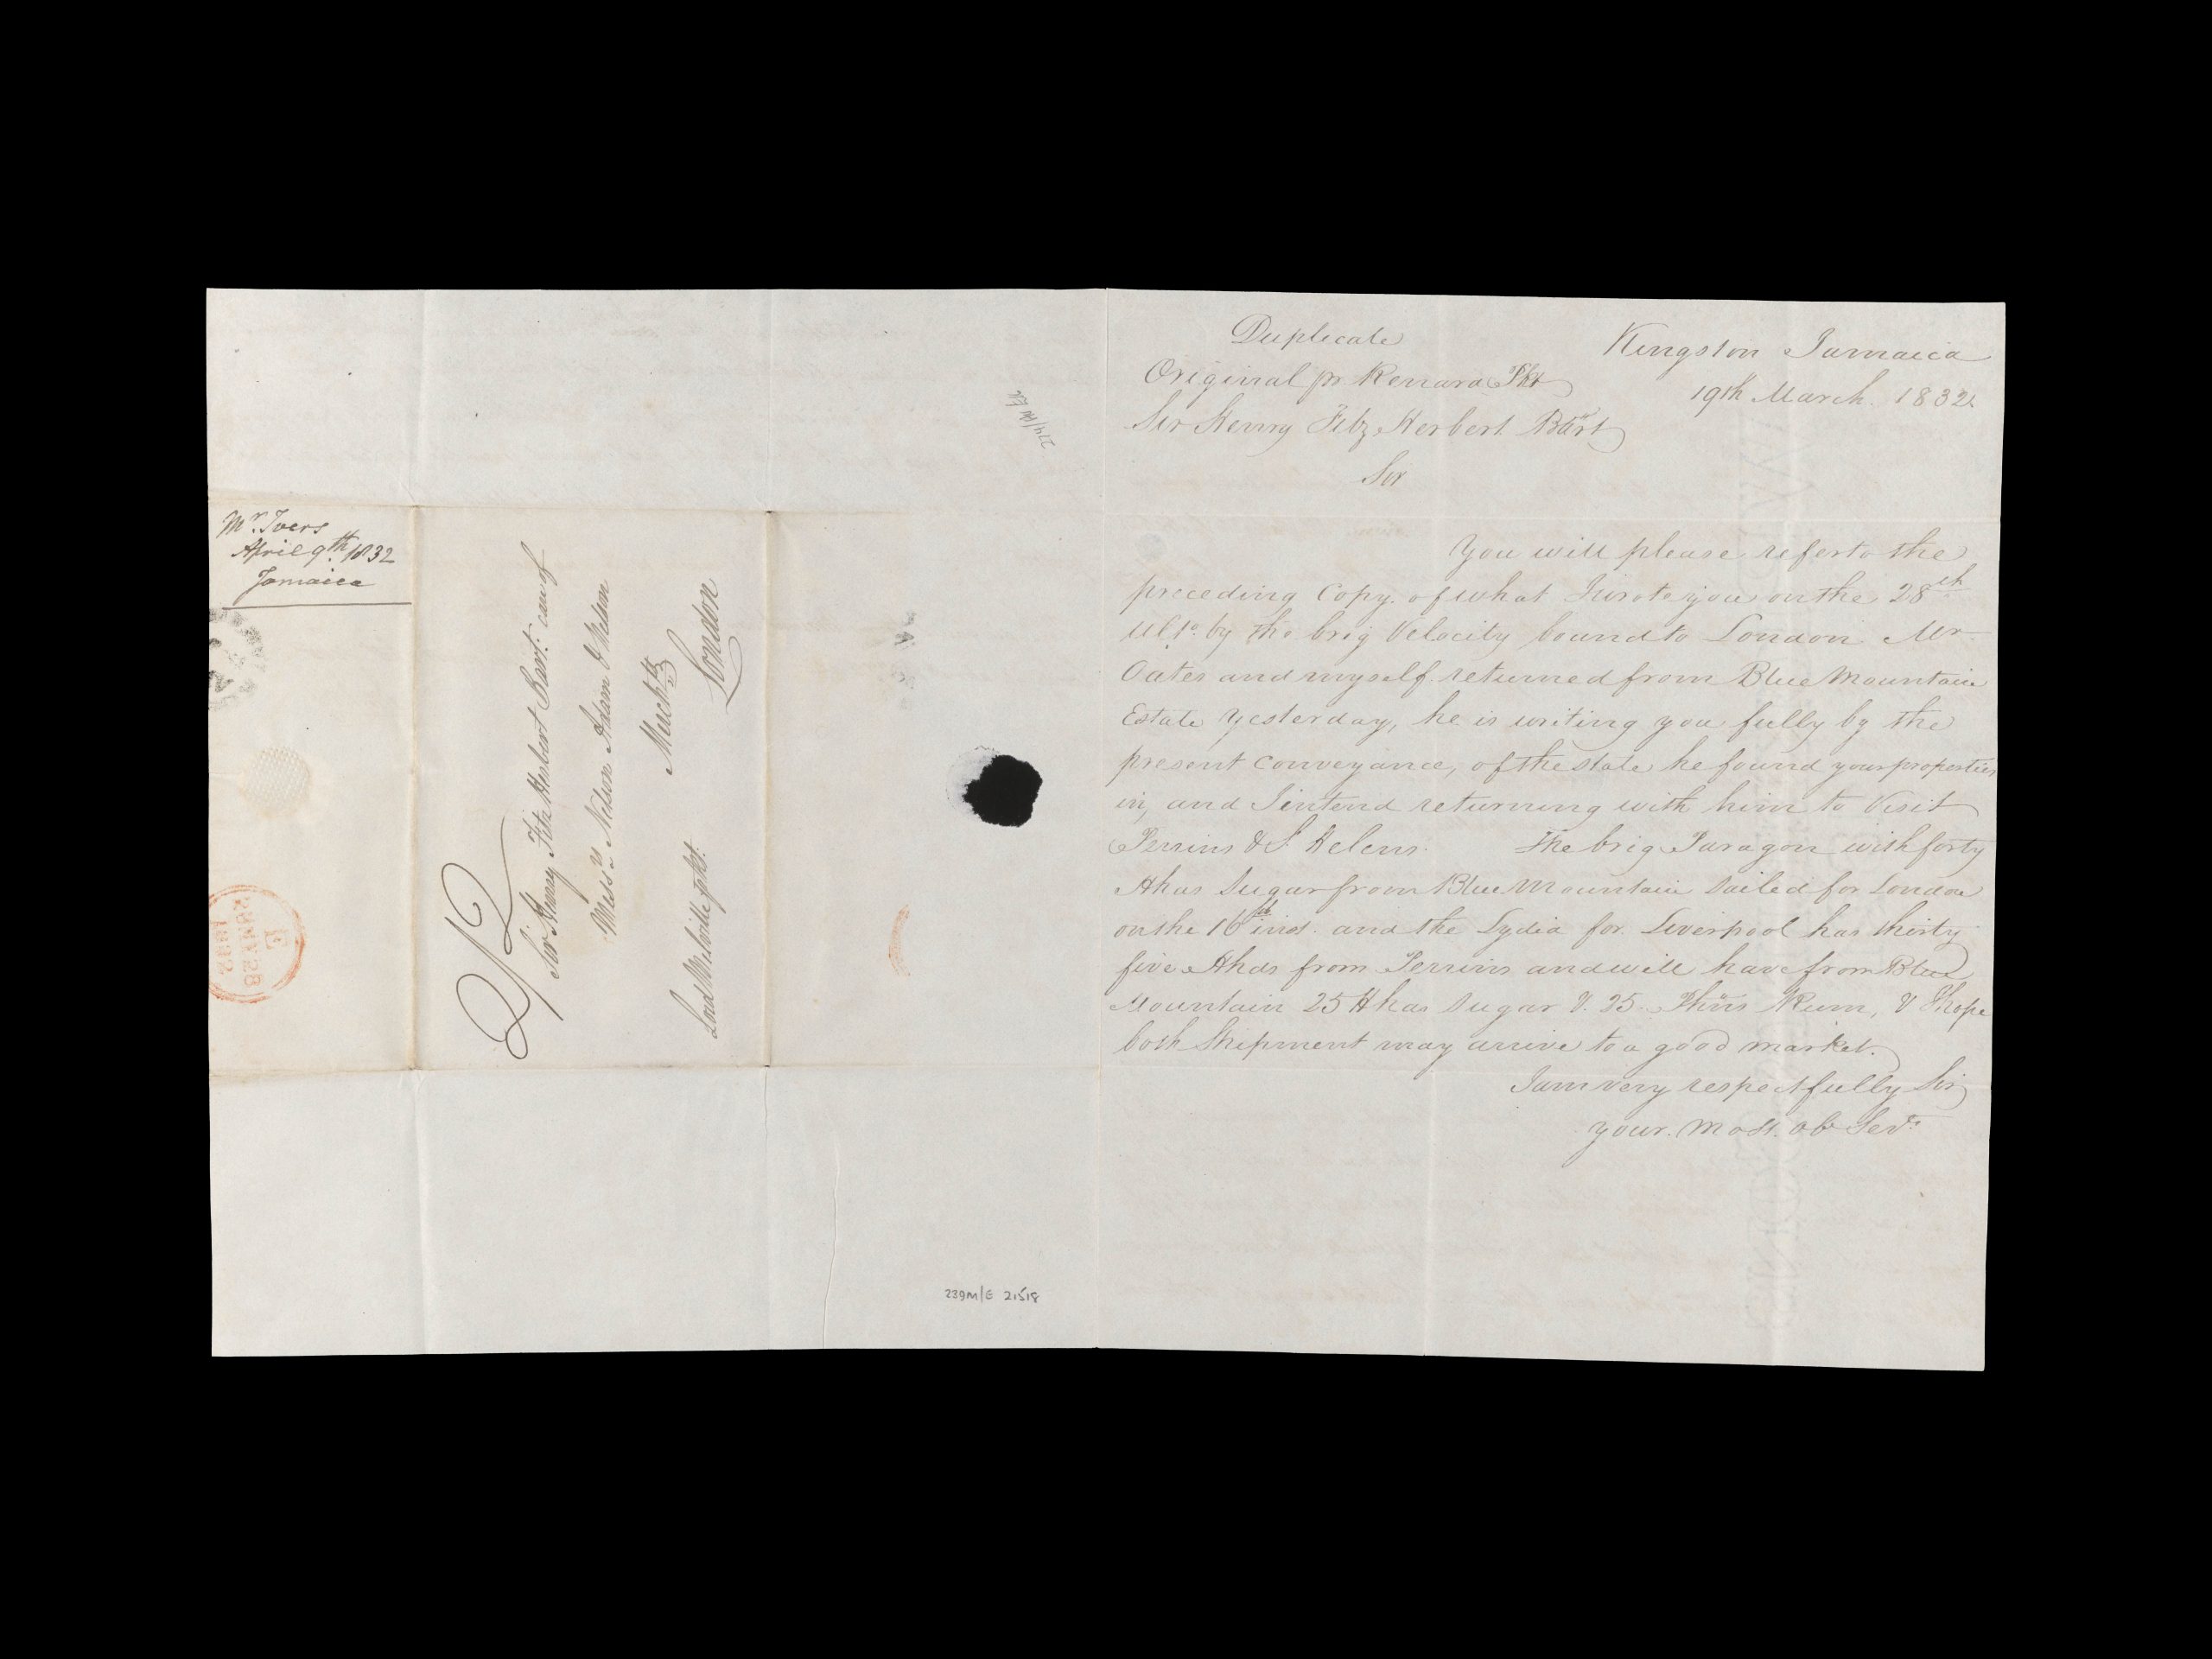 Mr. Ivers
April 9th. 1832
Jamaica
E
28 MY 28
1832
2/2
Sir Henry Fitz Herbert Bart. care of
Messrs Nelson Adam & Nelson
Mercht
London
Lord Melville pkt.
239M/E 21518
Duplicate
Kingston Jamaica
Original pr. Pkt
19th March. 1832
Sir Henry Fitz Herbert Bart
Sir
You will please refer to the
preceding Copy. of what I wrote you on the 28th
Ulto. by the brig Velocity bound to London. Mr
Oates and myself. returned from Blue Mountain
Estate Yesterday, he is writing you fully by the
present Conveyance, of the state he found your properties
in, and I intend returning with him to Visit
Perrins & St Helens. The brig Paragon with forty
Hhds Sugar from Blue Mountain Sailed for London
on the 16th inst. and the Lydia for Liverpool has thirty
five Hhds from Perrins and will have from Blue
Mountain 25 Hhds Sugar & Rum, & I hope
both Shipment may arrive to a good market.
I am very respectfully Sir
your. Most. ob Servt.